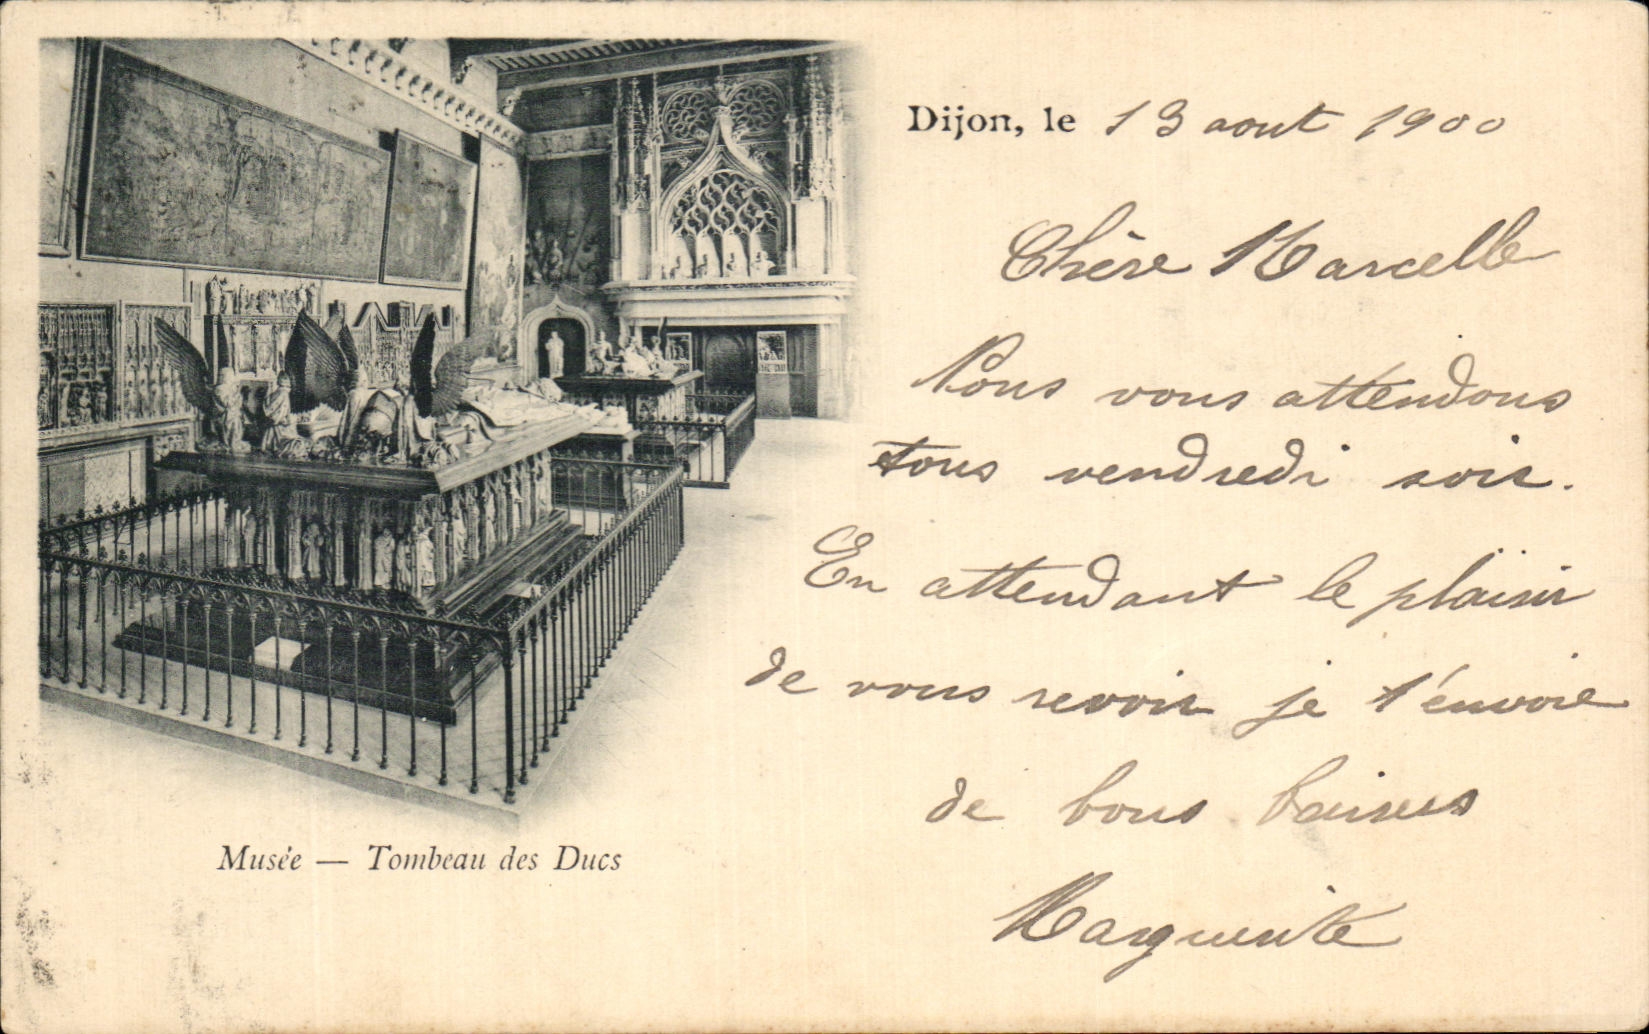 Dijon, le 13 aout 1900
Chère Marcelle
Nous vous attendons
tous vendredi soir.
En attendant le plaisir
de vous revoir je t'envoie
de bons baisers
Marguerite
Musée — Tombeau des Ducs